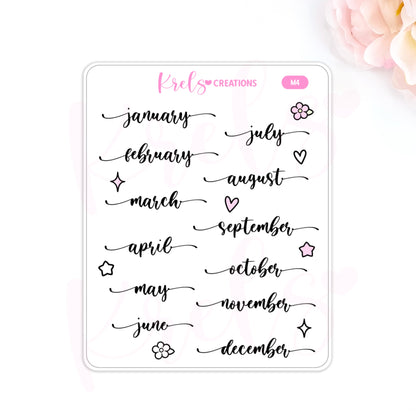 Krels CREATIONS
M4
january
february
march
april
may
june
july
august
september
october
november
december